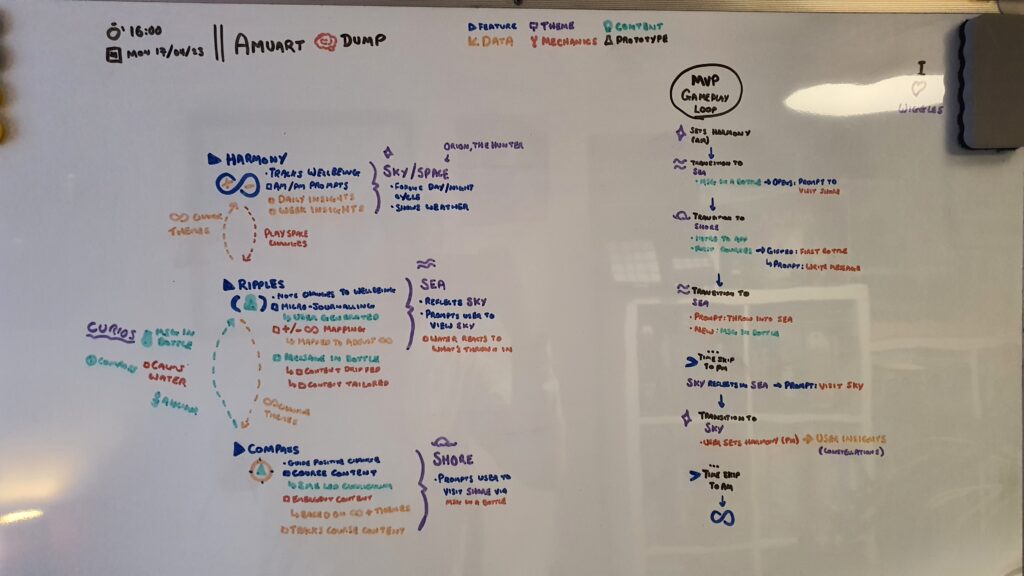 16:00
MON 17/04/23
AMUART DUMP
FEATURE THEME CONTENT
DATA MECHANICS PROTOTYPE
I
WIGGLES
HARMONY
• TRACKS WELLBEING
AM/PM PROMPTS
DAILY INSIGHTS
WEEK INSIGHTS
ORION, THE HUNTER
SKY/SPACE
DAY/NIGHT
CYCLE
• SHOWS WEATHER
THEMES
PLAYSPACE
CHANGES
RIPPLES
• NOTE CHANGES TO WELLBEING
MICRO-JOURNALLING
USER GENERATED
+/- ∞ MAPPING
MAPPED TO ∞
MESSAGE IN BOTTLE
CONTENT DRIPPED
CONTENT TAILORED
SEA
• REFLECTS SKY
• PROMPTS USER TO
VIEW SKY
WATER REACTS TO
WHAT'S THROWN IN
CURIOS
MSG IN
BOTTLE
COMPASS
CALM
WATER
THEMES
COMPASS
• GUIDE POSITIVE CHANGE
COURSE CONTENT
EMERGENT CONTENT
↳ BASED ON ∞ + THEMES
TRACKS COURSE CONTENT
SHORE
• PROMPTS USER TO
VISIT SHORE VIA
MSG IN A BOTTLE
MVP
GAMEPLAY
LOOP
SETS HARMONY
(AM)
TRANSITION TO
SEA
• MSG IN A BOTTLE → OPENS: PROMPT TO
VISIT SHORE
TRANSITION TO
SHORE
• INTRO TO APP
→ GIFTED: FIRST BOTTLE
↳ PROMPT: WRITE MESSAGE
TRANSITION TO
SEA
• PROMPT: THROW INTO SEA
• NEW: MSG IN BOTTLE
TIME SKIP
TO PM
SKY REFLECTS IN SEA → PROMPT: VISIT SKY
TRANSITION TO
SKY
• USER SETS HARMONY (PM) → USER INSIGHTS
(CONSTELLATIONS)
TIME SKIP
TO AM